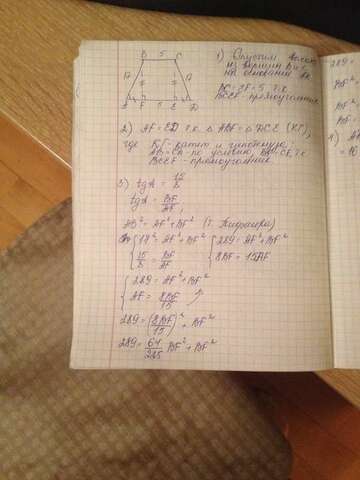 B 5 C
17 17
A F 5 E D
1) Опустим высоты
из вершин B и C
на основание AD
BC = EF = 5 т.к.
BCEF - прямоугольник
2) AF = ED т.к. △ABF = △DCE (КГ),
где КГ - катет и гипотенуза
AB = CD - по условию, BF = CE т.к.
BCEF - прямоугольник
3) tgA = 15/8
tgA = BF/AF;
AB² = AF² + BF² (т. Пифагора)
{ 17² = AF² + BF² { 289 = AF² + BF²
15/8 = BF/AF 8BF = 15AF
{ 289 = AF² + BF²
AF = 8BF/15
289 = (8BF/15)² + BF²
289 = 64/225 BF² + BF²
289 =
BF²
BF
4)
= 10